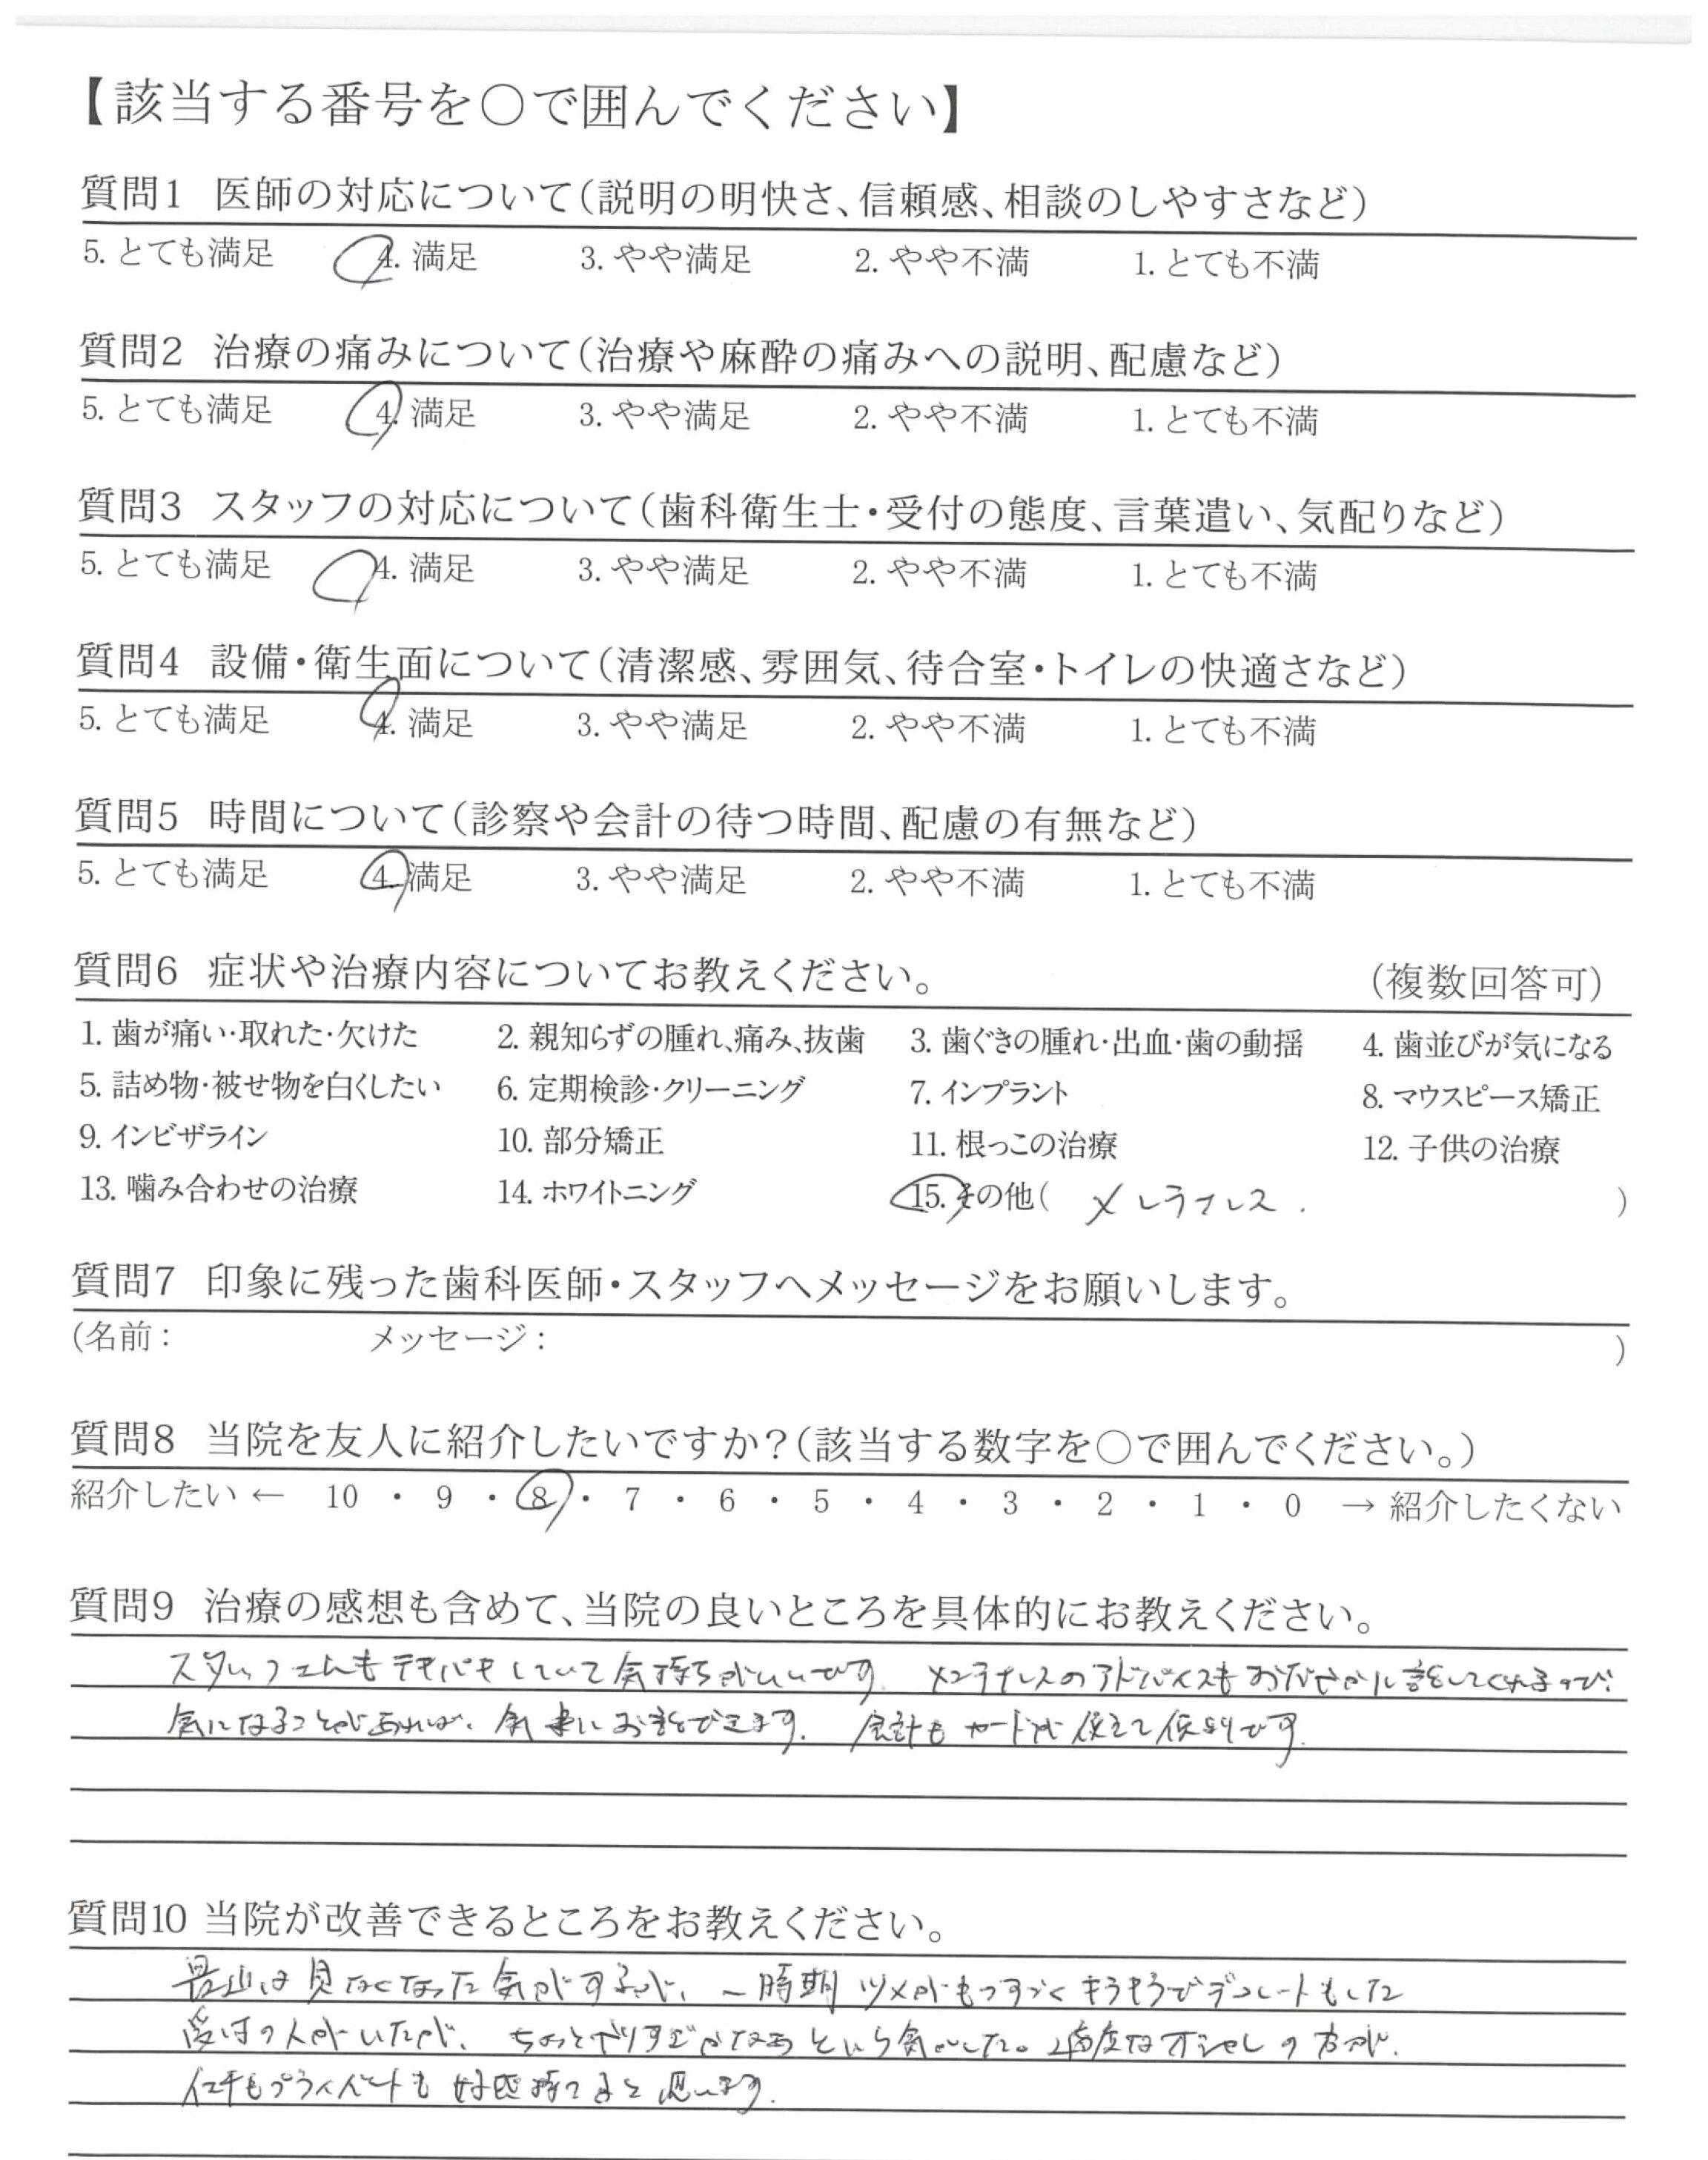 【該当する番号を○で囲んでください】
質問1 医師の対応について(説明の明快さ、信頼感、相談のしやすさなど)
5. とても満足 4. 満足 3. やや満足 2. やや不満 1. とても不満
質問2 治療の痛みについて(治療や麻酔の痛みへの説明、配慮など)
5. とても満足 4. 満足 3. やや満足 2. やや不満 1. とても不満
質問3 スタッフの対応について(歯科衛生士・受付の態度、言葉遣い、気配りなど)
5. とても満足 4. 満足 3. やや満足 2. やや不満 1. とても不満
質問4 設備・衛生面について(清潔感、雰囲気、待合室・トイレの快適さなど)
5. とても満足 4. 満足 3. やや満足 2. やや不満 1. とても不満
質問5 時間について(診察や会計の待つ時間、配慮の有無など)
5. とても満足 4. 満足 3. やや満足 2. やや不満 1. とても不満
質問6 症状や治療内容についてお教えください。 (複数回答可)
1. 歯が痛い・取れた・欠けた 2. 親知らずの腫れ、痛み、抜歯 3. 歯ぐきの腫れ・出血・歯の動揺 4. 歯並びが気になる
5. 詰め物・被せ物を白くしたい 6. 定期検診・クリーニング 7. インプラント 8. マウスピース矯正
9. インビザライン 10. 部分矯正 11. 根っこの治療 12. 子供の治療
13. 噛み合わせの治療 14. ホワイトニング 15. その他( )
質問7 印象に残った歯科医師・スタッフへメッセージをお願いします。
(名前: メッセージ: )
質問8 当院を友人に紹介したいですか?(該当する数字を○で囲んでください。)
紹介したい ← 10 ・ 9 ・ 8 ・ 7 ・ 6 ・ 5 ・ 4 ・ 3 ・ 2 ・ 1 ・ 0 → 紹介したくない
質問9 治療の感想も含めて、当院の良いところを具体的にお教えください。
スタッフさんもテキパキしていて気持ちがいいです。メンテナンスのアドバイスもおだやかに話をしてくれるので
気になることがあれば、気楽にお話できます。会計もカードが使えて便利です。
質問10 当院が改善できるところをお教えください。
最近は見なくなった気がするが、一時期ツメがものすごくキラキラでデコレートもした
受付の人がいたが、ちょっとやりすぎかなあという気がした。適度なオシャレの方が、
仕事もプライベートも好感持てると思います。